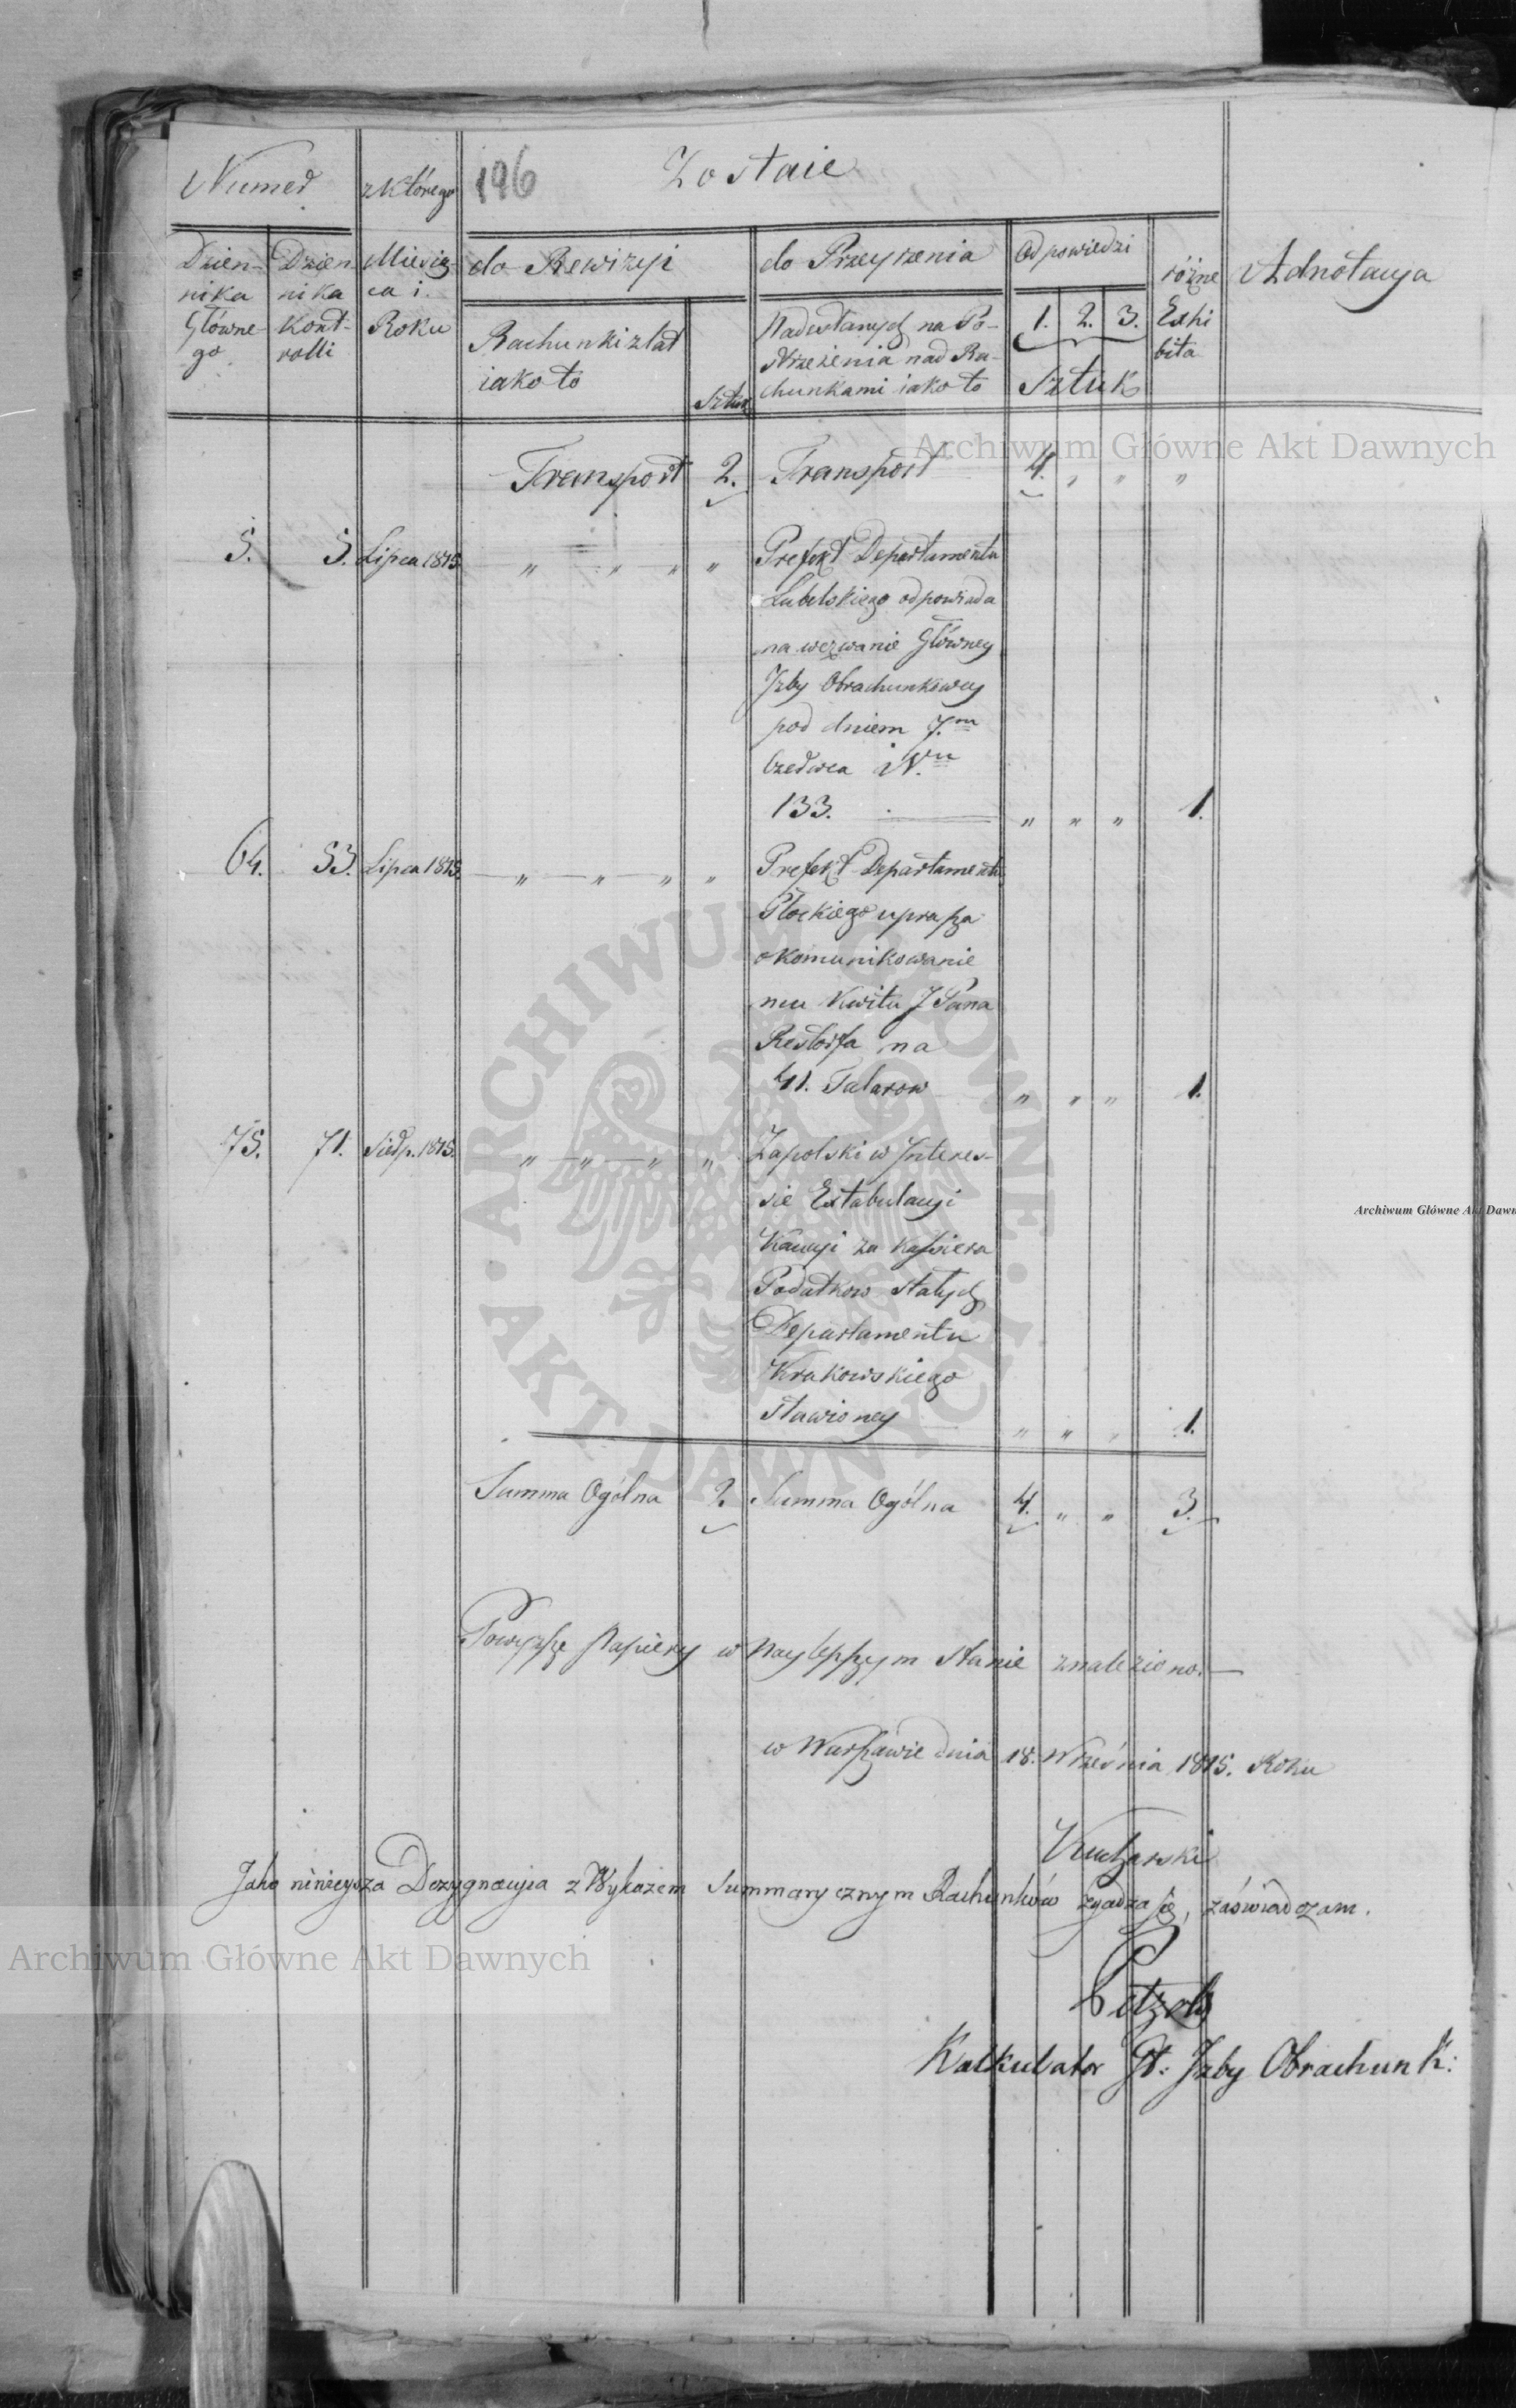 Numer
z którego
196
Zostaie
Dzien-
nika
Główne-
go
Dzien
nika
Kont-
rolli
Miesią-
ca i
Roku
do Rewizyi
Rachunki z lat
iako to
Sztuk
do Przeyrzenia
Nadesłanych na Po-
strzeżenia nad Ra-
chunkami iako to
Odpowiedzi
1. 2. 3.
Sztuk
różne
Exhi
bita
Adnotacya
Transport 2. Transport 4. " " "
5. 5. Lipca 1815. " " " " Prefekt Departamentu
Lubelskiego odpowiada
na wezwanie Główney
Izby Obrachunkowey
pod dniem 7.m
Czerwca N.ru
133. " " " 1.
64. 53. Lipca 1815. " " " " Prefekt Departamentu
Płockiego uprasza
o komunikowanie
mu Kwitu J Pana
Restorfa na
41. Talarow " " " 1.
75. 71. Sierp. 1815. " " " " Zapolski w Interes-
sie Extabulacyi
Kaucyi za Kassiera
Podatkow stałych
Departamentu
Krakowskiego
stawioney " " " 1.
Summa Ogólna 2. Summa Ogólna 4. " " 3.
Powyższe Papiery w Naylepszym stanie znaleziono.
w Warszawie dnia 18. Września 1815. Roku
Kucharski
Jako ninieysza Dezygnacyia z Wykazem Summarycznym Rachunków zgadza się, zaświadczam.
Kalkulator Gł: Izby Obrachunk:
Archiwum Główne Akt Dawnych
Archiwum Główne Akt Dawn
Archiwum Główne Akt Dawnych
ARCHIWUM GŁÓWNE · AKT DAWNYCH ·